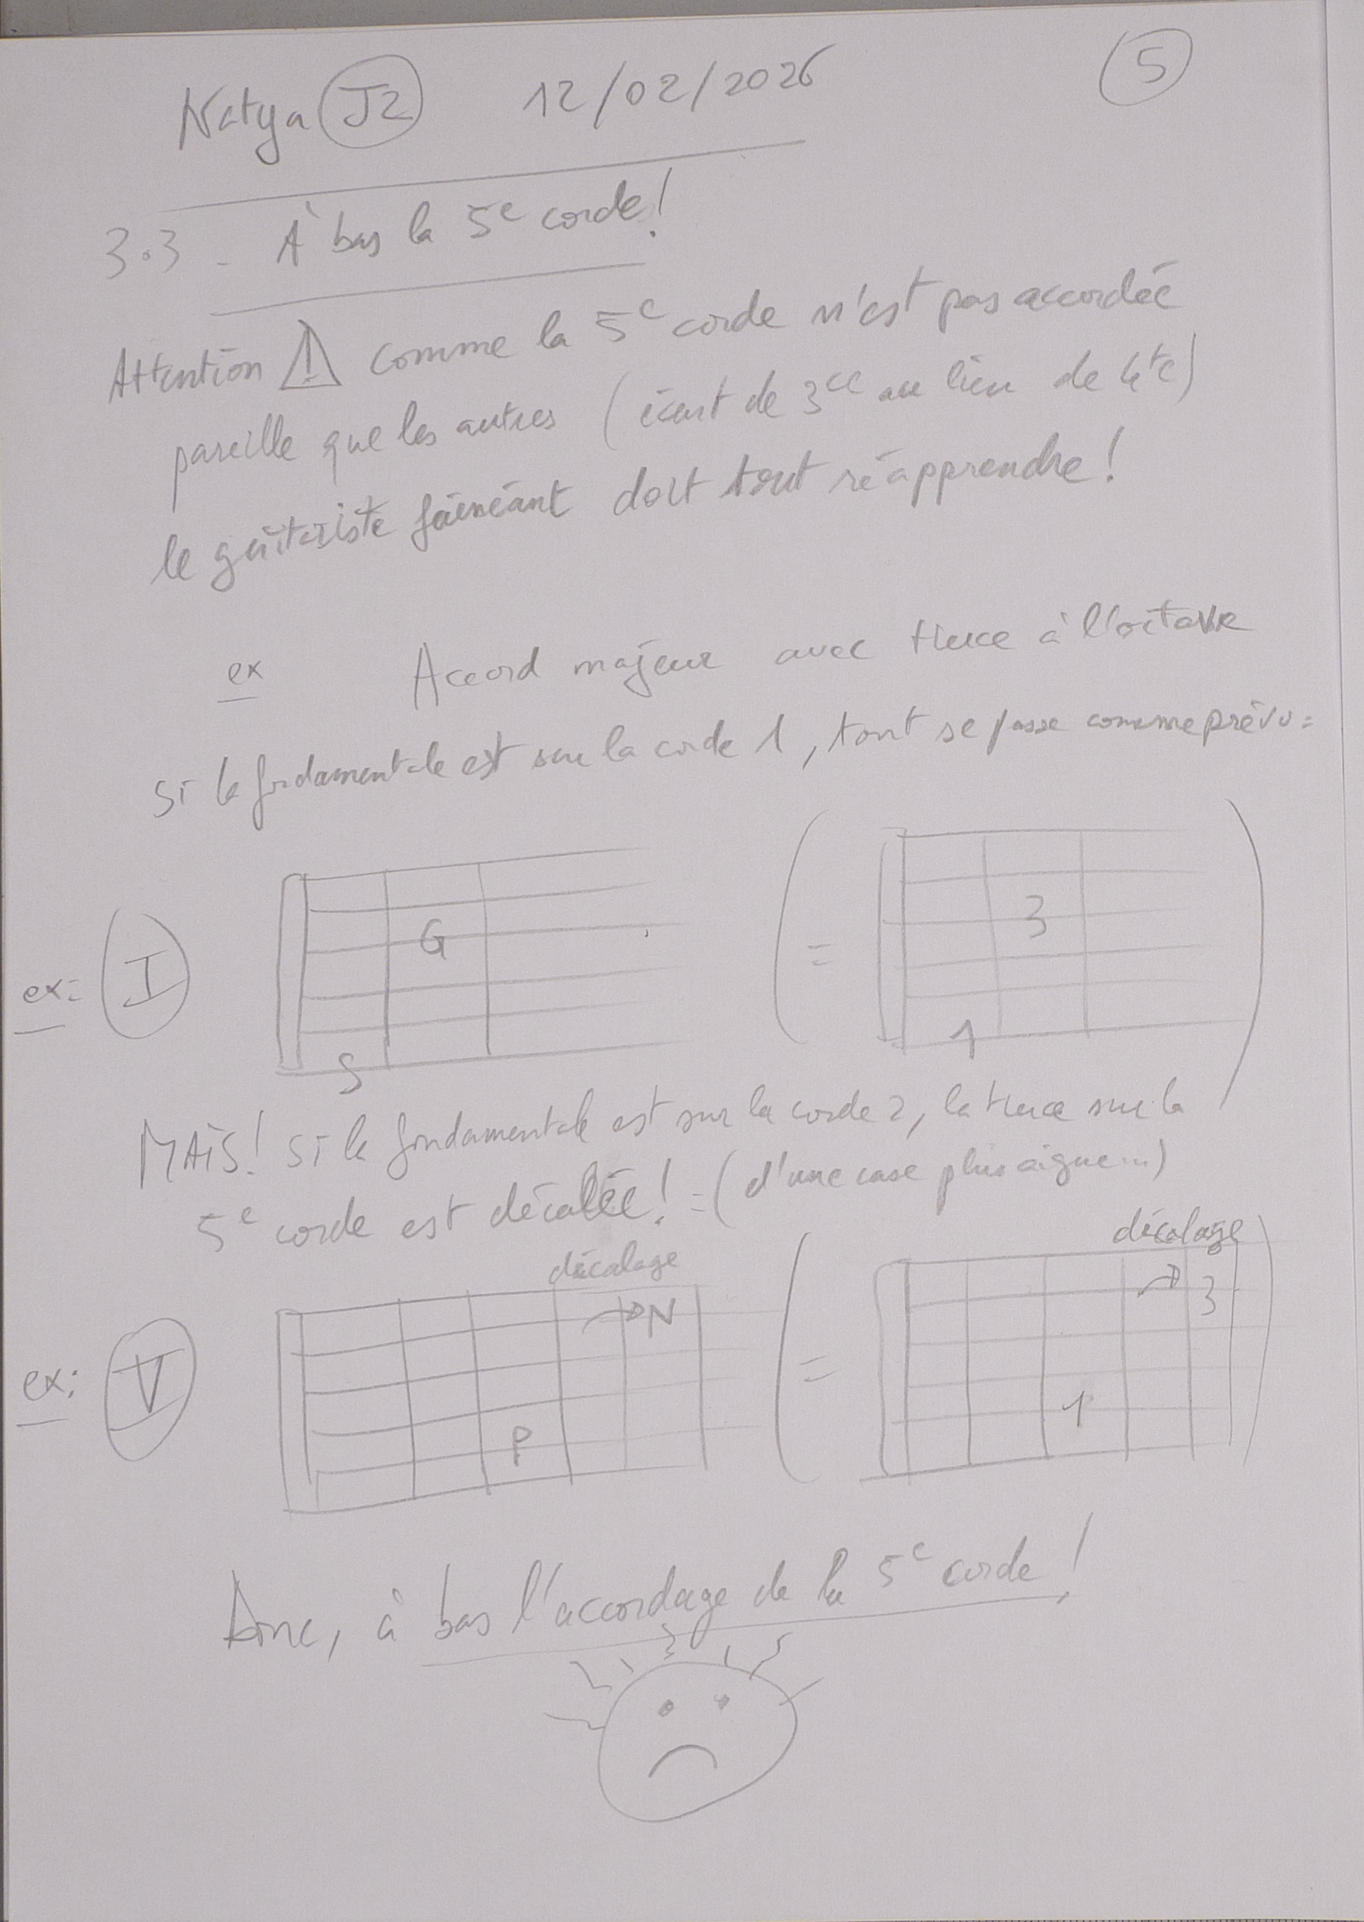 Natya J2 12/02/2026 5
3.3 - À bas la 5e corde!
Attention ! comme la 5e corde n'est pas accordée
pareille que les autres (écart de 3ce au lieu de 4te)
le guitariste fainéant doit tout réapprendre!
ex Accord majeur avec tierce à l'octave
si la fondamentale est sur la corde 1, tout se passe comme prévu:
ex: I G = 3
S 1
MAIS! si la fondamentale est sur la corde 2, la tierce sur la
5e corde est décalée! = (d'une case plus aigue...)
décalage décalage
ex: V N = 3
P 1
Donc, à bas l'accordage de la 5e corde!